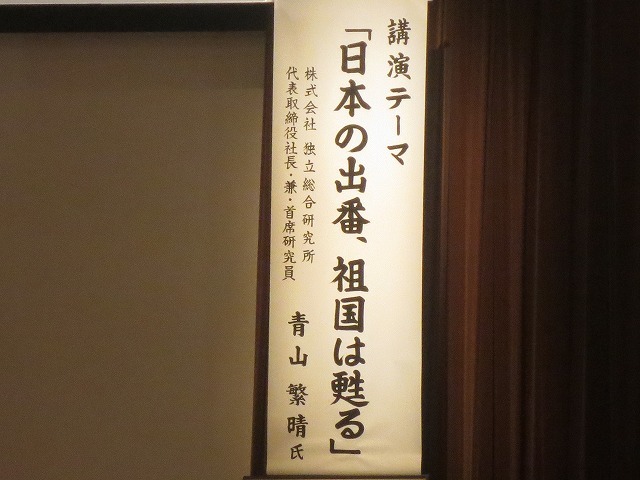 講演テーマ
「日本の出番、祖国は甦る」
株式会社 独立総合研究所
代表取締役社長・兼・首席研究員
青山繁晴氏